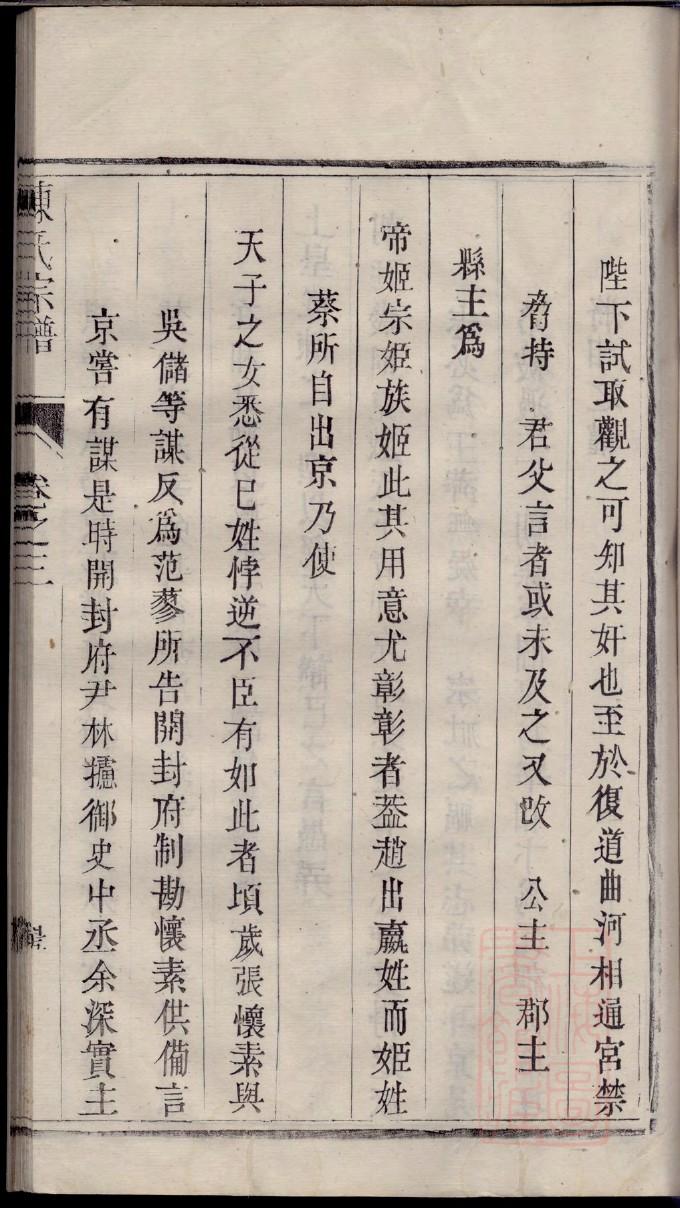 陛下試取觀之可知其奸也至於復道曲河相通宮禁
脅持　君父言者或未及之又改　公主　郡主
縣主爲
帝姬宗姬族姬此其用意尤彰彰者葢趙出嬴姓而姬姓
蔡所自出京乃使
天子之女悉從巳姓悖逆不臣有如此者頃歲張懷素與
吳儲等謀反爲范蓼所告開封府制勘懷素供備言
京嘗有謀是時開封府尹林攄御史中丞余深實主
陳氏宗譜　卷之三